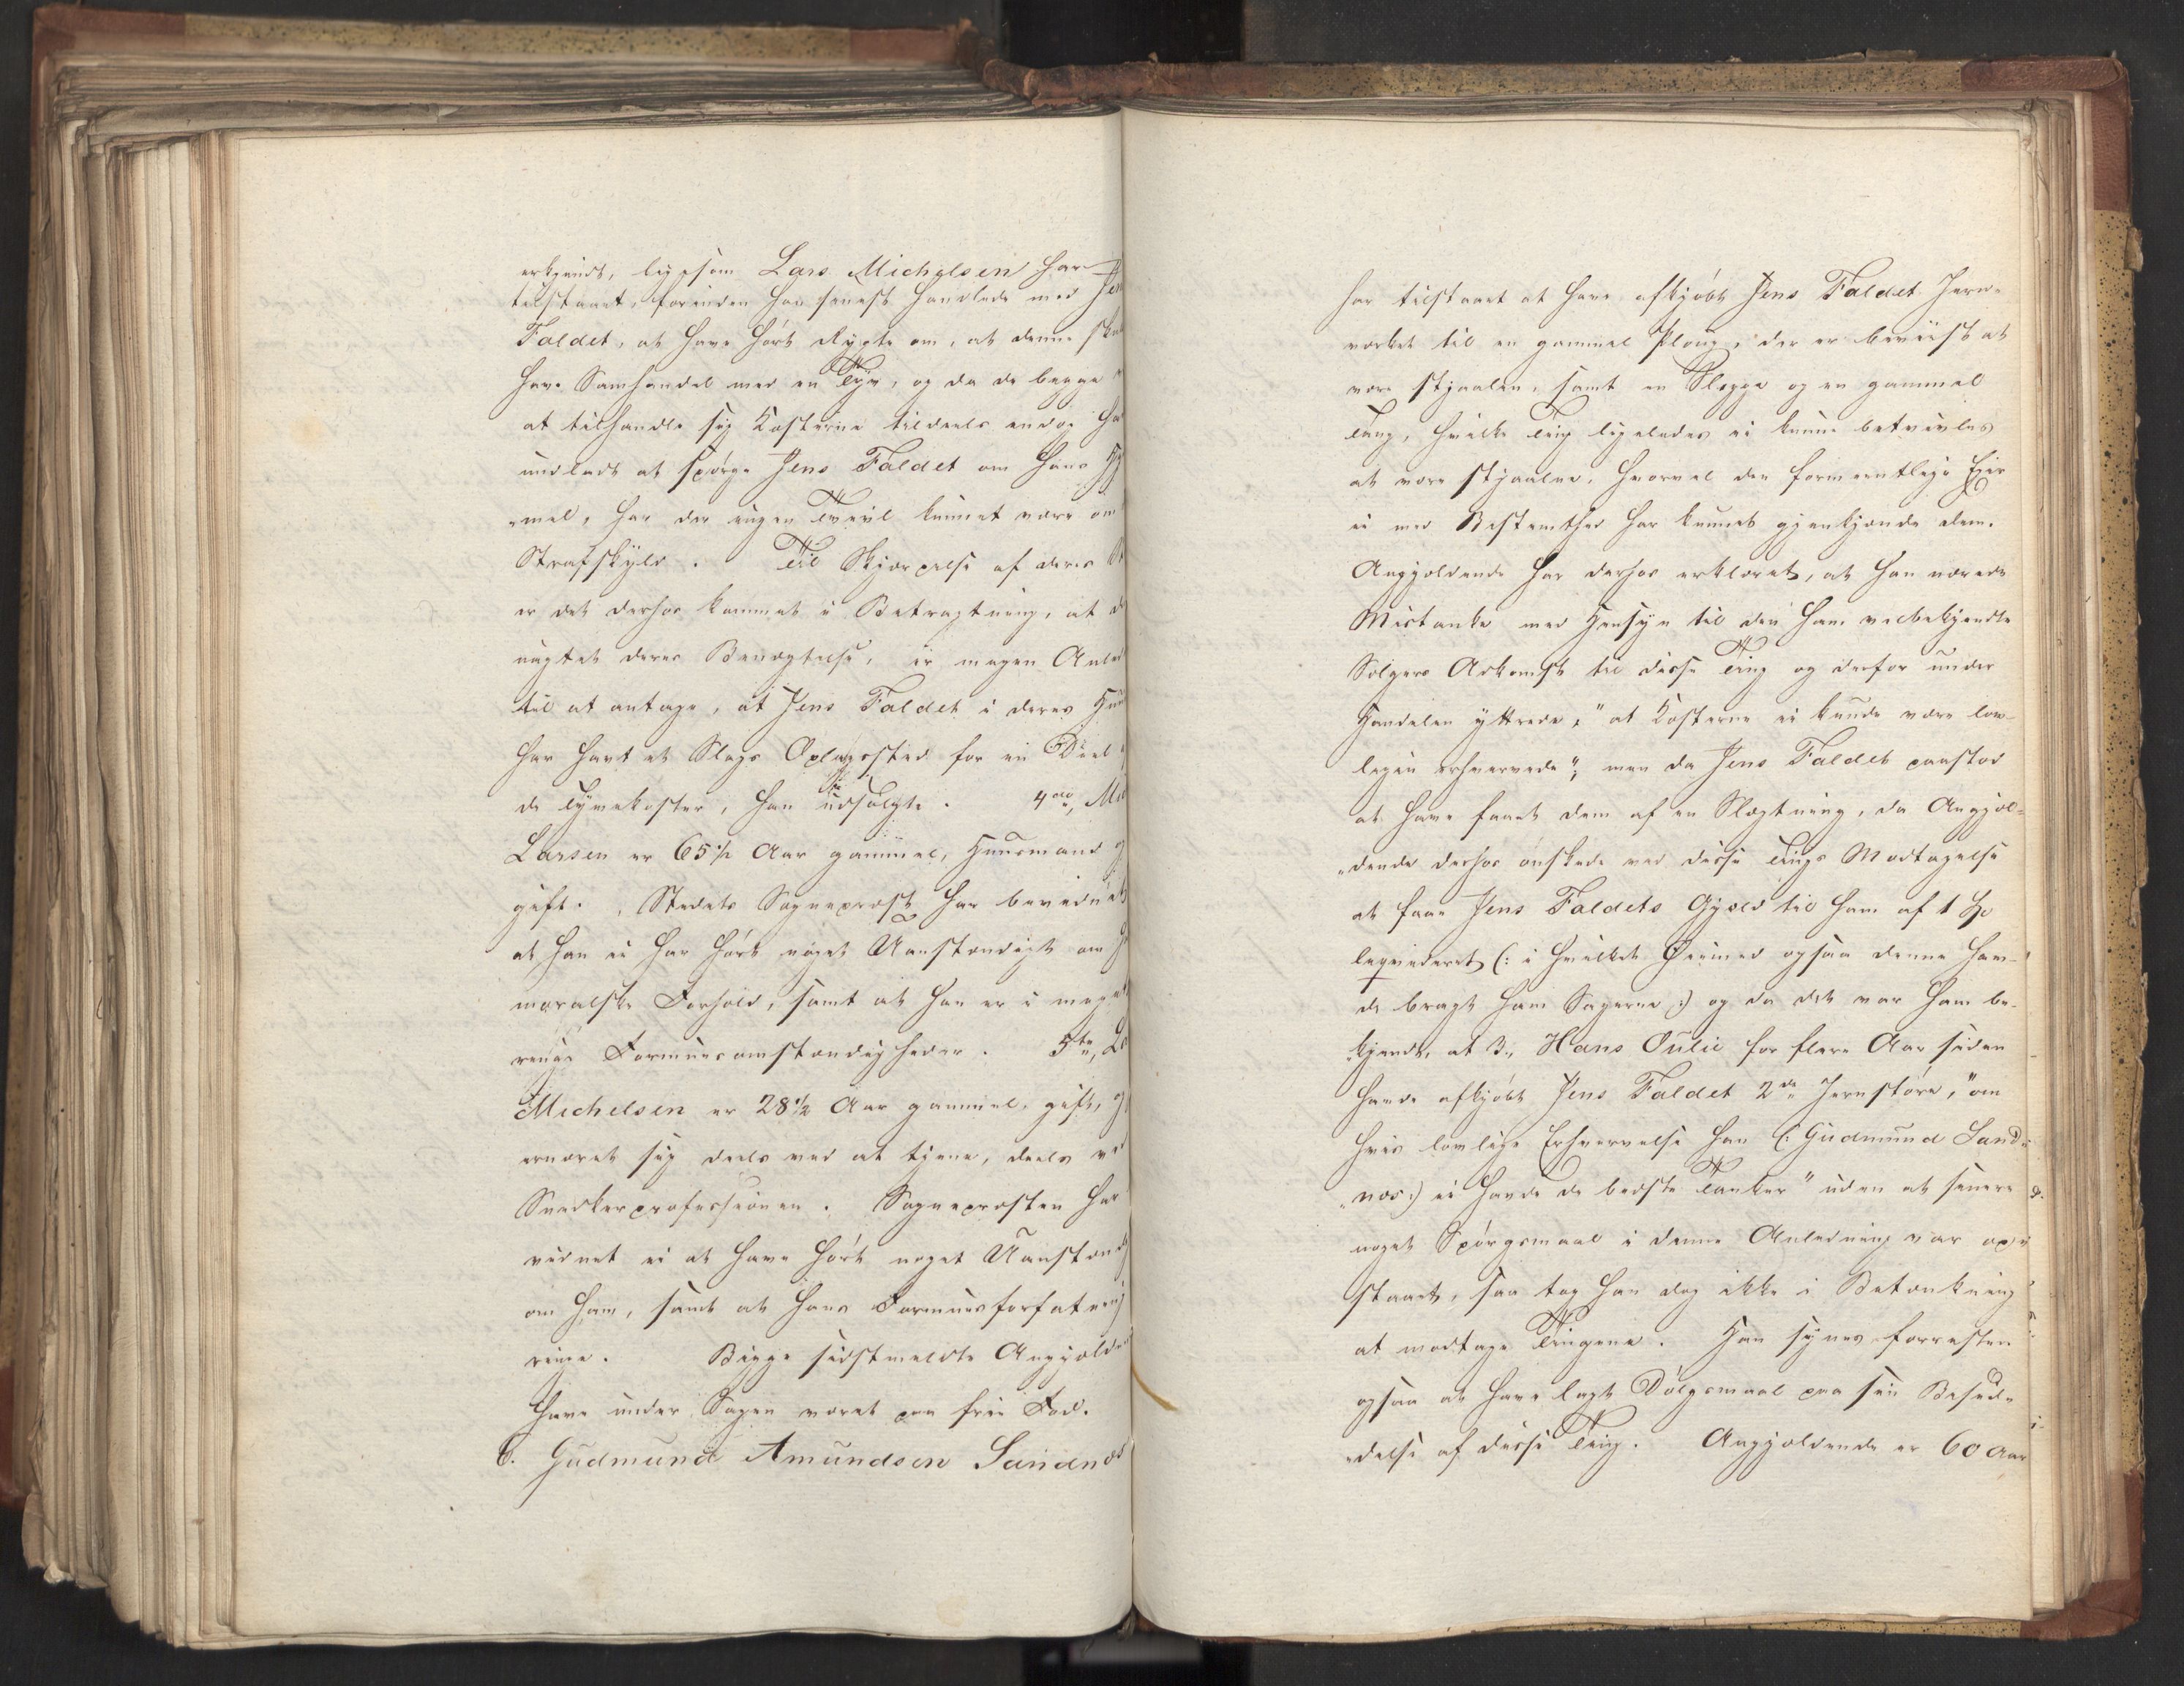 erkjendt, ligesom Lars Michelsen har
tilstaaet, forinden han senest handlede med Jen
Faldet, at have hørt Rygte om, at denne skul
have Samhandel med en Tyv, og da de begge
at tilhandle sig Kosterne tildeels endog ha
undladt at spørge Jens Faldet om hans Hj
-mel, har der ingen Tvivl kunnet være om
Strafskyld. Til Skjærpelse af deres St
er det derhos kommet i Betragtning, at d
ugtet deres Benægtelse, er megen Anled
til at antage, at Jens Faldet i deres Huu
har havt et Slags Oplagssted for en Deel
de Tyvekoster, han udsolgte. 4to, Mic
Larsen er 65 1/2 Aar gammel, Huusmand og
gift. Stedets Sognepræst har bevidnet
at han ei har hørt noget Uanstændigt om h
moralske Forhold, samt at han er i meget
ringe Formuesomstændigheder. 5te, La
Michelsen er 28 1/2 Aar gammel, gift, og
ernæret sig deels ved at tjene, deels ve
Snedkerprofessionen. Sognepræsten har
vidnet ei at have hørt noget Uanstænd
om ham, samt at hans Formuesforfatning
ringe. Begge sidstmeldte Angjælde
have under Sagen været paa frie Fod.
6. Gudmund Amundsen Sandnæs
har tilstaaet at have afkjøbt Jens Faldet Jern-
værket til en gammel Ploug, der er beviist at
være stjaalen, samt en Slegge og en gammel
Tang, hvilke Ting ligeledes ei kunne betvivles
at være stjaalne, hvorvel den formeentlige Eier
ei med Bestemthed har kunnet gjenkjende dem.
Angjældende har derhos erklæret, at han nærede
Mistanke med Hensyn til den ham velbekjendte
Sælgers Adkomst til disse Ting og derfor under
Handelen yttrede, "at Kosterne ei kunde være lov-
ligen erhvervede"; men da Jens Faldet paastod
at have faaet dem af en Slægtning, da Angjæl-
-dende derhos ønskede ved disse Tings Modtagelse
at faae Jens Faldets Gjæld til ham af 1 Sp
liqvideret (: i hvilket Øiemed ogsaa denne hav-
de bragt ham Sagerne :) og da det var ham be-
-kjendt, at 3., Hans Oulie for flere Aar siden
havde afkjøbt Jens Faldet 2de Jernstøre, "om
hvis lovlige Erhvervelse han (: Gudmund Sand-
-næs :) ei havde de bedste Tanker" uden at senere
noget Spørgsmaal i denne Anledning var op-
staaet, saa tog han dog ikke i Betænkning
at modtage Tingene. Han synes forresten
ogsaa at have lagt Dølgsmaal paa sin Besid-
-delse af disse Ting. Angjældende er 60 Aar